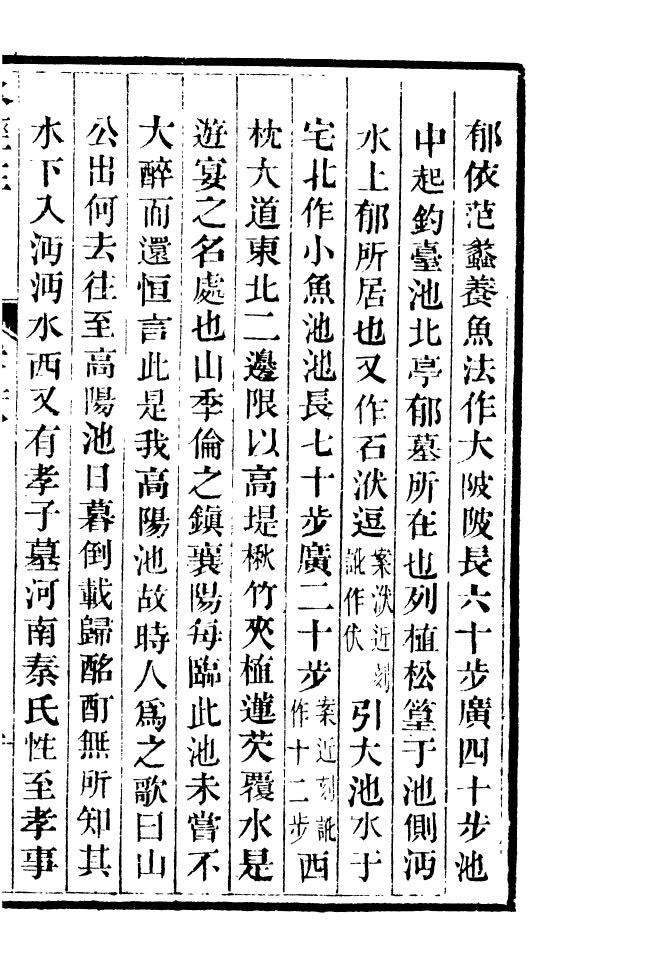 郁依范蠡養魚法作大陂陂長六十步廣四十步池
中起釣臺池北亭郁墓所在也列植松篁于池側沔
水上郁所居也又作石洑逗案洑近刻訛作伏引大池水于
宅北作小魚池池長七十步廣二十步案近刻訛作十二步西
枕大道東北二邊限以高堤楸竹夾植蓮芡覆水是
遊宴之名處也山季倫之鎮襄陽每臨此池未嘗不
大醉而還恒言此是我高陽池故時人為之歌曰山
公出何去往至高陽池日暮倒載歸酩酊無所知其
水下入沔沔水西又有孝子墓河南秦氏性至孝事